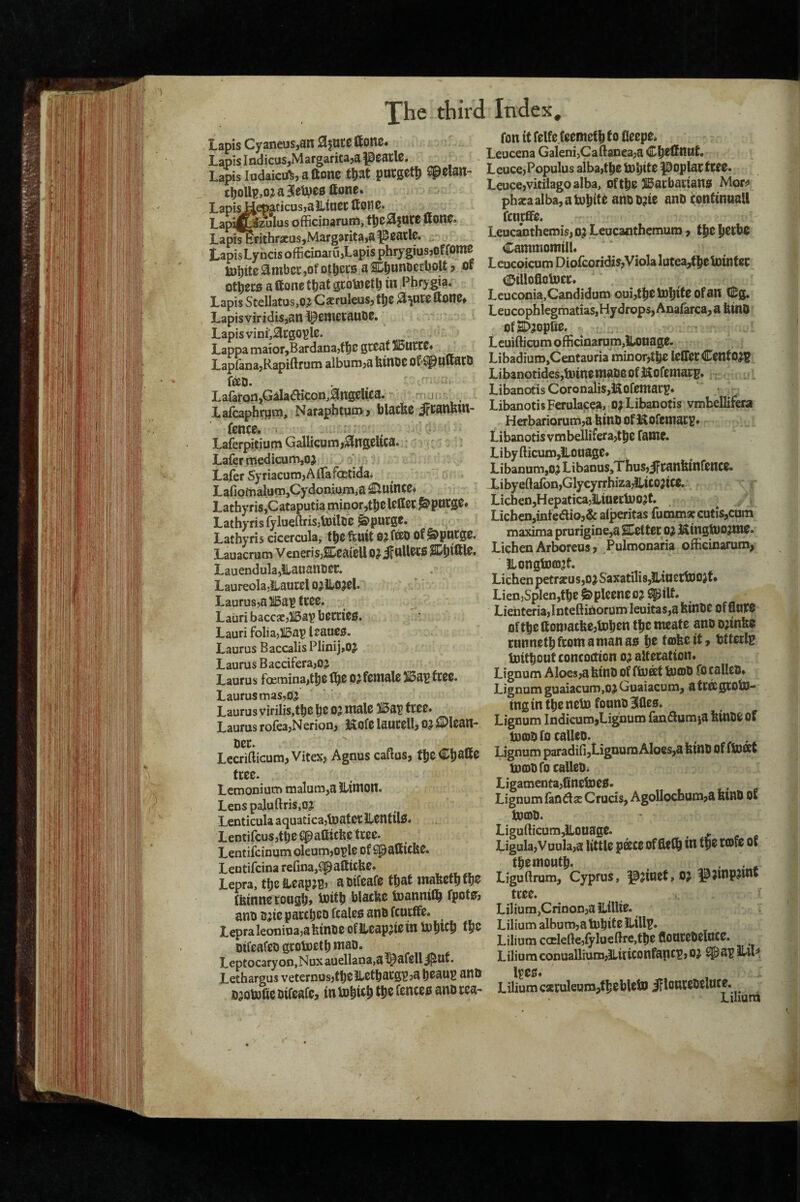 The third Index.
Lapis Cyaneus, an Azure stone.
Lapis Indicus, Margarita, a Pearle.
Lapis Iudaicus, a stone that purgeth Melan-
chollp, oz a Jewes stone.
Lapis Hepaticus, a Liuer stone.
Lapis Lazulus officinarum, the Azure stone.
Lapis Erithræus, Margarita, a Pearle.
Lapis Lyncis officinarū, Lapis phrygius, of some
white Amber, of others a Thunderbolt, of
others a stone that groweth in Phrygia.
Lapis Stellatus, oz Cæruleus, the Azure stone.
Lapis viridis, an Hemeraude.
Lapis vini, Argople.
Lappa maior, Bardana, the great Burre.
Lapsana, Rapistrum album, a kinde of Mustard
seed.
Lasaron, Galacticon, Angelica.
Lascaphrum, Naraphtum, blacke Frankin-
sence.
Laserpitium Gallicum, Angelica.
Laser medicum, oz
Laser Syriacum, Assa fœtida.
Lasiomalum, Cydonium, a Quince.
Lathyris, Cataputia minor, the lesser Spurge.
Lathyris syluestris, wilde Spurge.
Lathyris cicercula, the fruit oz seed of Spurge.
Lauacrum Veneris, Teasell oz Fullers Thistle.
Lauendula, Lauander.
Laureola, Laurel oz Lozel.
Laurus, a Bay tree.
Lauri baccæ, Bay berries.
Lauri folia, Bay leaues.
Laurus Baccalis Plinij, oz
Laurus Baccifera, oz
Laurus fœmina, the she oz female Bay tree.
Laurus mas, oz
Laurus virilis, the he oz male Bay tree.
Laurus rosea, Nerion, Rose laurell, oz Olean-
der.
Lecristicum, Vitex, Agnus castus, the Chaste
tree.
Lemonium malum, a Limon.
Lens palustris, oz
Lenticula aquatica, water Lentils.
Lentiscus, the Masticke tree.
Lentiscinum oleum, oyle of Masticke.
Lentiscina resina, Masticke.
Lepra, the Leapzy, a disease that maketh the
skinne rough, with blacke wannish spots,
and dzie parched scales and scurffe.
Lepra leonina, a kinde of Leapzie in which the
diseased groweth mad.
Leptocaryon, Nux auellana, a Hasell Nut.
Lethargus veternus, the Lethargy, a heauy and
dzowsie disease, in which the sences and rea-
son it selfe seemeth to sleepe.
Leucena Galeni, Castanea, a Chestnut.
Leuce, Populus alba, the white Poplar tree.
Leuce, vitilago alba, of the Barbarians Mor-
phæa alba, a white and dzie and continuall
scurffe.
Leucanthemis, oz Leucanthemum, the herbe
Cammomill.
Leucoicum Dioscoridis, Viola lutea, the winter
Gilloflower.
Leuconia, Candidum oui, the white of an Eg.
Leucophlegmatias, Hydrops, Anasarca, a kind
of Dzopsie.
Leuisticum officinarum, Louage.
Libadium, Centauria minor, the lesser Centozy
Libanotides, wine made of Rosemary.
Libanotis Coronalis, Rosemary.
Libanotis Ferulacea, oz Libanotis vmbellifera
Herbariorum, a kind of Rosemary.
Libanotis vmbellifera, the same.
Libysticum, Louage.
Libanum, oz Libanus, Thus, Frankinsence.
Libyestason, Glycyrrhiza, Licozice.
Lichen, Hepatica, Liuerwozt.
Lichen, infectio, & asperitas summæ cutis, cum
maxima prurigine, a Tetter oz Ringwozme.
Lichen Arboreus, Pulmonaria officinarum,
Longwozt.
Lichen petræus, oz Saxatilis, Liuerwozt.
Lien, Splen, the Spleene oz Milt.
Lienteria, Intestinorum leuitas, a kinde of fluxe
of the stomacke, when the meate and dzinke
runneth from a man as he tooke it, vtterly
without concoction oz alteration.
Lignum Aloes, a kind of sweet wood so called.
Lignum guaiacum, oz Guaiacum, a tree grow-
ing in the new found Iles.
Lignum Indicum, Lignum sanctum, a kinde of
wood so called.
Lignum paradisi, Lignum Aloes, a kind of sweet
wood so called.
Ligamenta, sinewes.
Lignum sanctæ Crucis, Agollochum, a kind of
wood.
Ligusticum, Louage.
Ligula, Vuula, a little peece of flesh in the roofe of
the mouth.
Ligustrum, Cyprus, Pziuet, oz Pzimpzint
tree.
Lilium, Crinon, a Lillie.
Lilium album, a white Lilly.
Lilium cœleste, syluestre, the flouredeluce.
Lilium conuallium, Liriconfancy, oz May Lil-
lyes.
Lilium cæruleum, the blew Flouredeluce.
Lilium